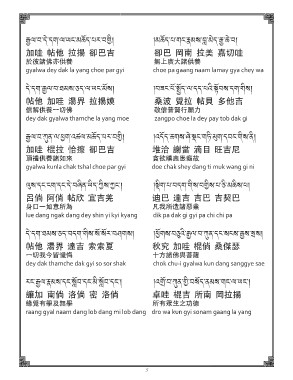 རྒྱལ་བ་དེ་དག་ལ་ཡང་མཆོད་པར་བགྱི། །མཆོད་པ་གང་རྣམས་བླ་མེད་རྒྱ་ཆེ་བ།
加哇 帖他 拉揚 卻巴吉 卻巴 岡南 拉美 嘉切哇
於彼諸佛亦供養 無上廣大諸供養
gyalwa dey dak la yang choe par gyi choe pa gaang naam lamay gya chey wa
དེ་དག་རྒྱལ་བ་ཐམས་ཅད་ལ་ཡང་མོས། །བཟང་པོ་སྤྱོད་ལ་དད་པའི་སྟོབས་དག་གིས།
帖他 加哇 湯界 拉揚嬈 桑波 覺拉 帖貝 多他吉
信解供養一切佛 敬信普賢行願力
dey dak gyalwa thamche la yang moe zangpo choe la dey pay tob dak gi
རྒྱལ་བ་ཀུན་ལ་ཕྱག་འཚལ་མཆོད་པར་བགྱི། །འདོད་ཆགས་ཞེ་སྡང་གཏི་མུག་དབང་གིས་ནི།
加哇 棍拉 恰嚓 卻巴吉 堆洽 謝當 滴目 旺吉尼
頂禮供養諸如來 貪欲瞋恚愚癡故
gyalwa kunla chak tshal choe par gyi doe chak shey dang ti muk wang gi ni
ལུས་དང་ངག་དང་དེ་བཞིན་ཡིད་ཀྱིས་ཀྱང་། །སྡིག་པ་བདག་གིས་བགྱིས་པ་ཅི་མཆིས་པ།
呂倘 阿倘 帖欣 宜吉羌 迪巴 達吉 吉巴 吉契巴
身口一如意所為 凡我所造諸惡業
lue dang ngak dang dey shin yi kyi kyang dik pa dak gi gyi pa chi chi pa
དེ་དག་ཐམས་ཅད་བདག་གིས་སོ་སོར་བཤགས། །ཕྱོགས་བཅུའི་རྒྱལ་བ་ཀུན་དང་སངས་རྒྱས་སྲས།
帖他 湯界 達吉 索索夏 秋究 加哇 棍倘 桑傑瑟
一切我今皆懺悔 十方諸佛與菩薩
dey dak thamche dak gyi so sor shak chok chu-i gyalwa kun dang sanggye sae
རང་རྒྱལ་རྣམས་དང་སློབ་དང་མི་སློབ་དང་། །འགྲོ་བ་ཀུན་གྱི་བསོད་ནམས་གང་ལ་ཡང་།
讓加 南倘 洛倘 密 洛倘 卓哇 棍吉 所南 岡拉揚
緣覺有學及無學 所有眾生之功德
raang gyal naam dang lob dang mi lob dang dro wa kun gyi sonam gaang la yang